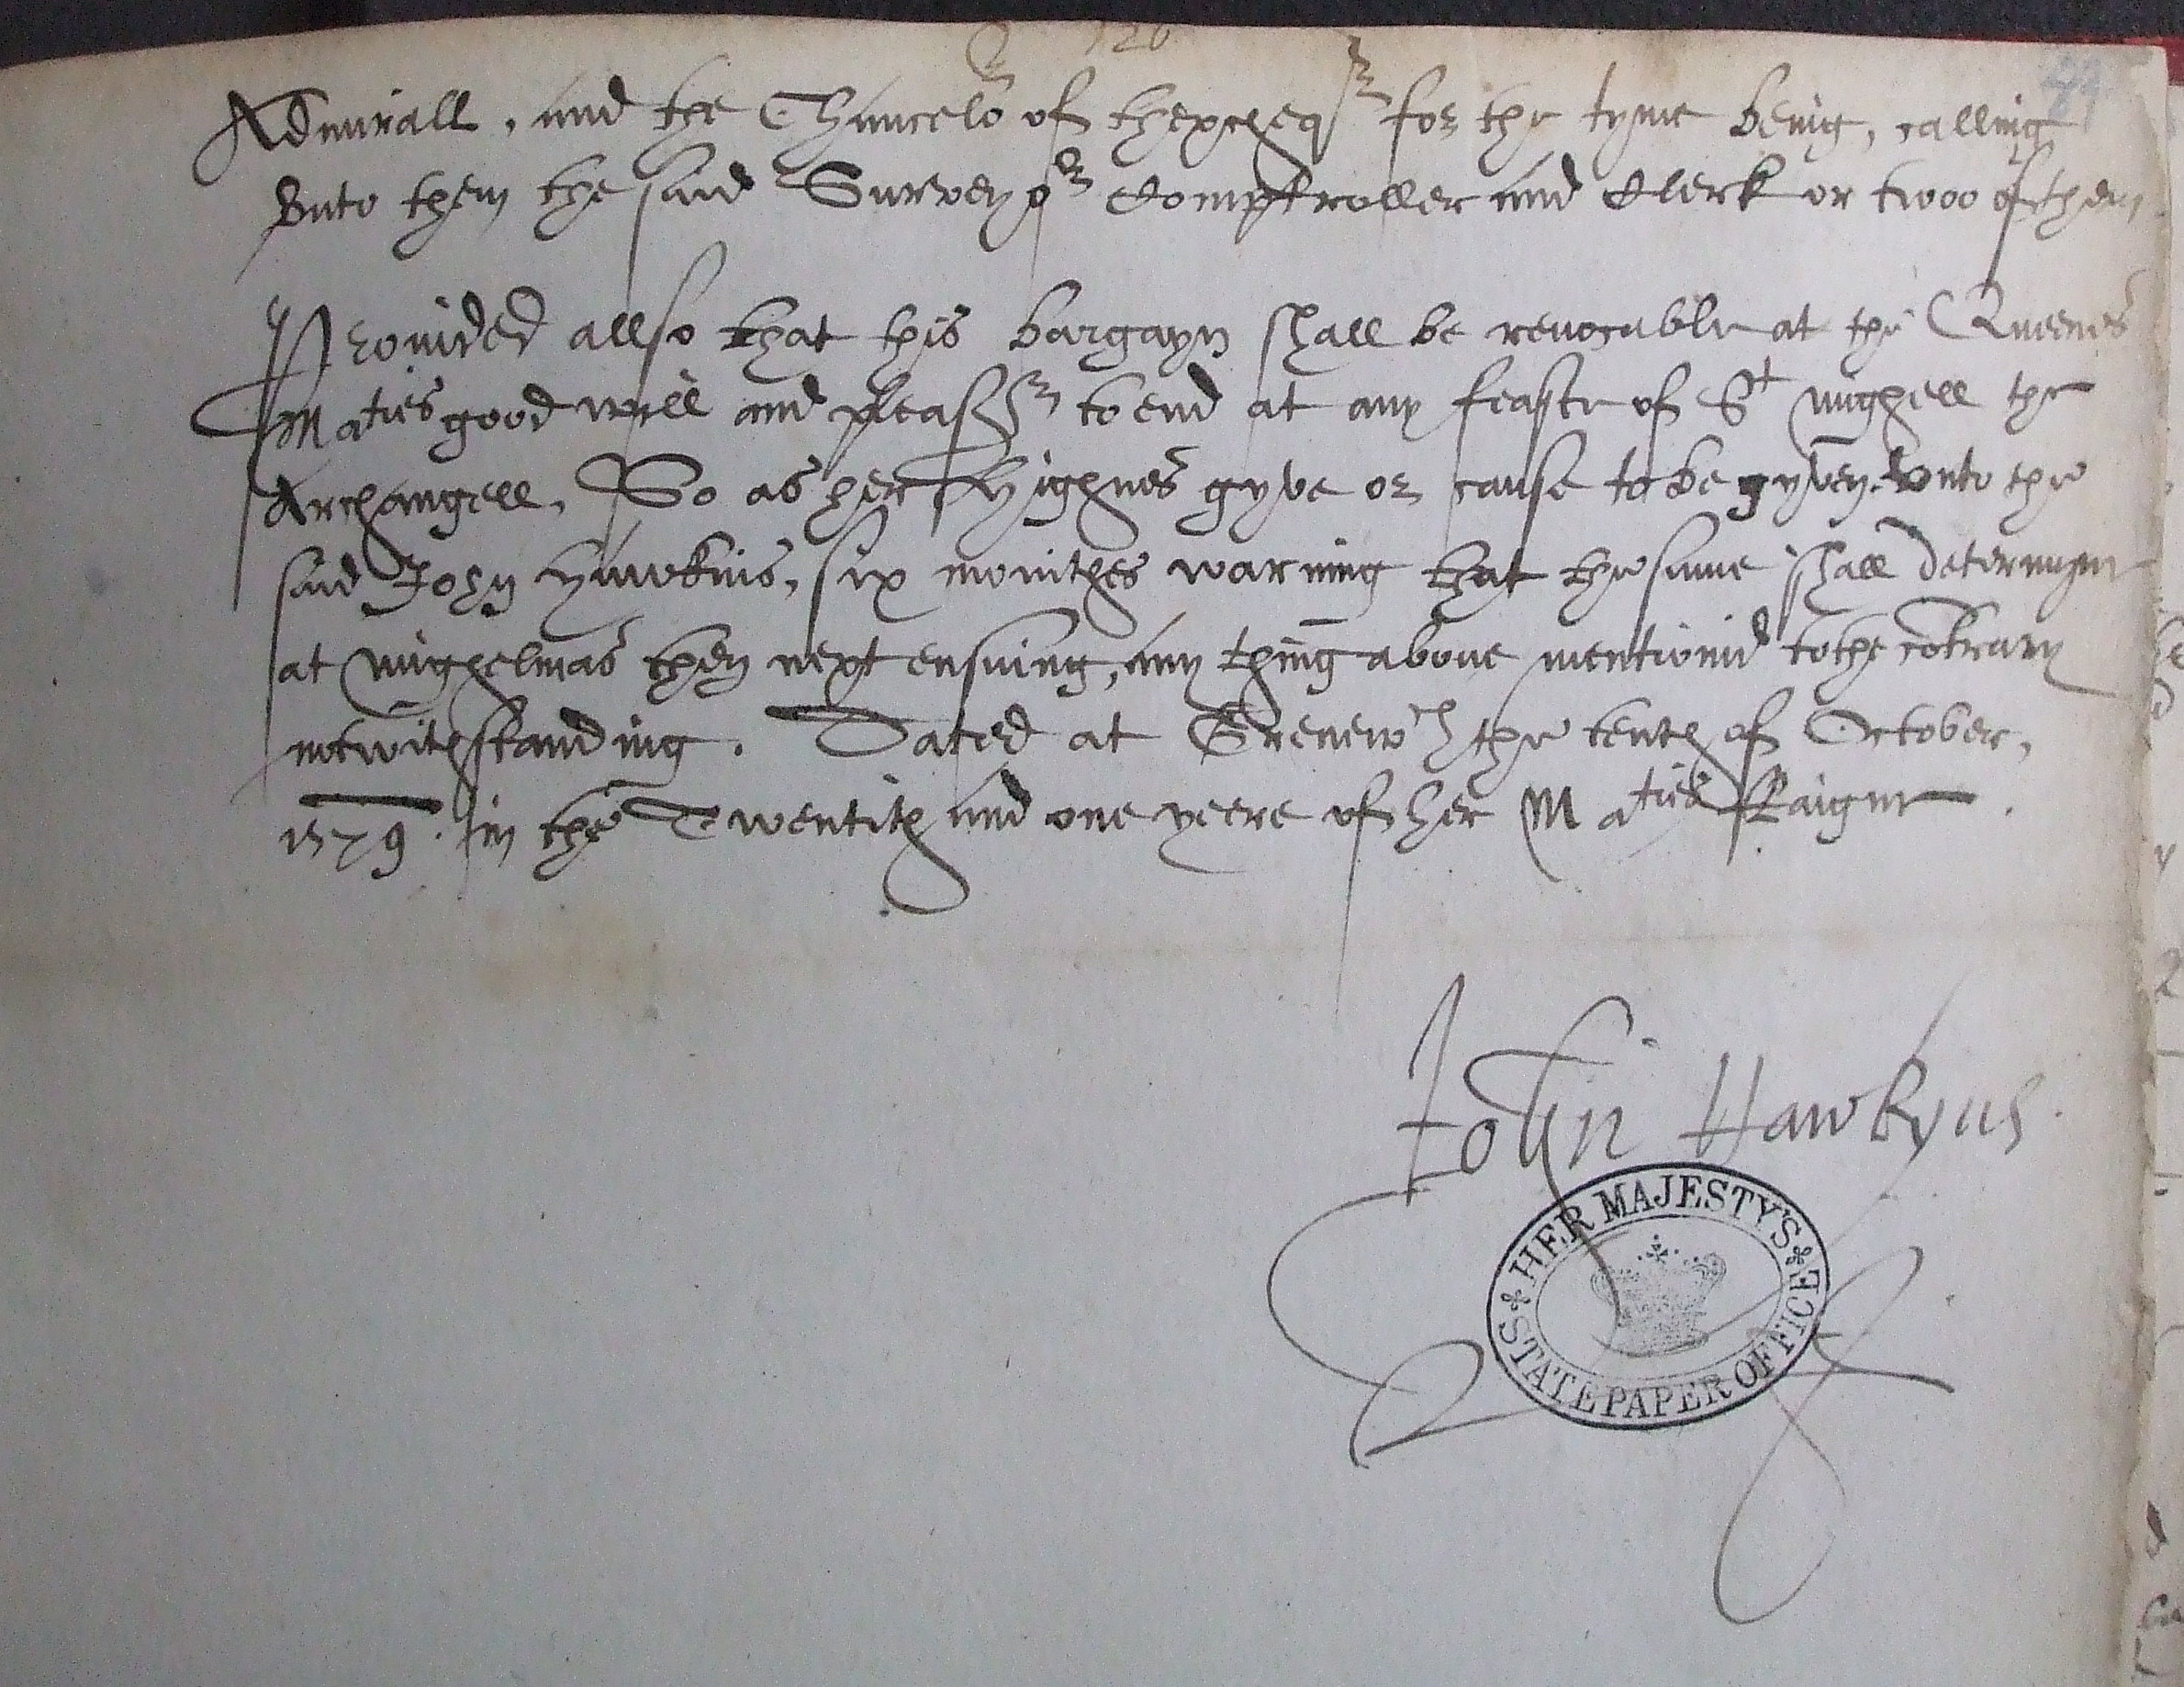 126
Admirall, and the Chancelor of thexcheqr for the tyme being, calling
Vnto them the said Surveyor Comptroller and Clerk or twoo of them
Prouided allso that this bargayn shall be reuocable at the Queenes
Maties good will and pleasur to end at any feaste of St Mighell the
Archangell, So as her Highnes gyve or cause to be gyven vnto the
said John Hawkins, six monthes warning that the same shall determyn
at Mighelmas then next ensuing, any thing above mentionid to the cōtrary
notwithstanding. Dated at Grenewch the tenth of October,
1579. In the Twentith and one yeere of her Maties Raigne.
John Hawkyns
HER MAJESTY'S
STATE PAPER OFFICE